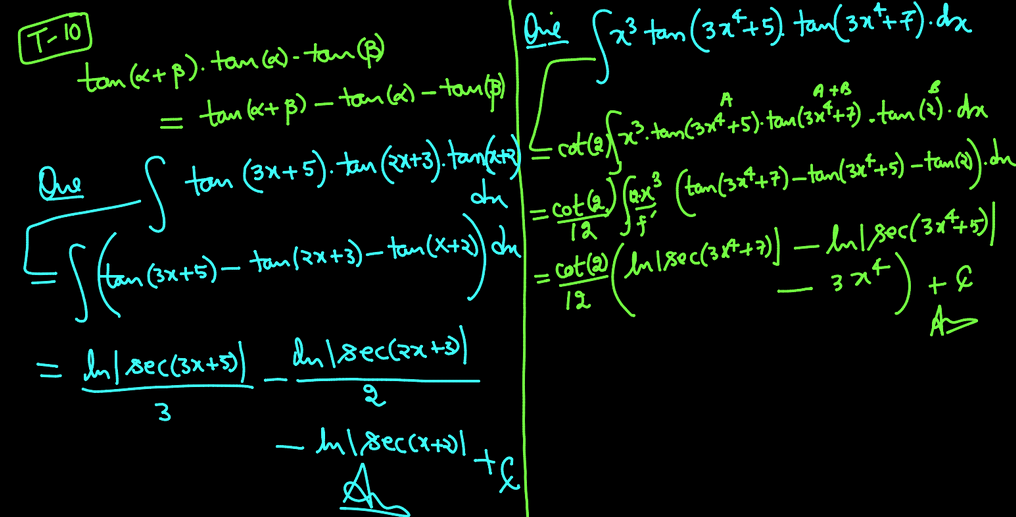 T-10
tan(α+β).tan(α).tan(β)
= tan(α+β) - tan(α) - tan(β)
Que ∫ tan(3x+5).tan(2x+3).tan(x+2) dx
= ∫ (tan(3x+5) - tan(2x+3) - tan(x+2)) dx
= ln|sec(3x+5)|/3 - ln|sec(2x+3)|/2
- ln|sec(x+2)| + C
Ans
Que ∫ x³ tan(3x⁴+5). tan(3x⁴+7).dx
A A+B B
= cot(2) ∫ x³.tan(3x⁴+5).tan(3x⁴+7).tan(2).dx
= cot(2)/12 ∫ 12x³ (tan(3x⁴+7) - tan(3x⁴+5) - tan(2)).dx
f'
= cot(2)/12 (ln|sec(3x⁴+7)| - ln|sec(3x⁴+5)|
- 3x⁴) + C
Ans